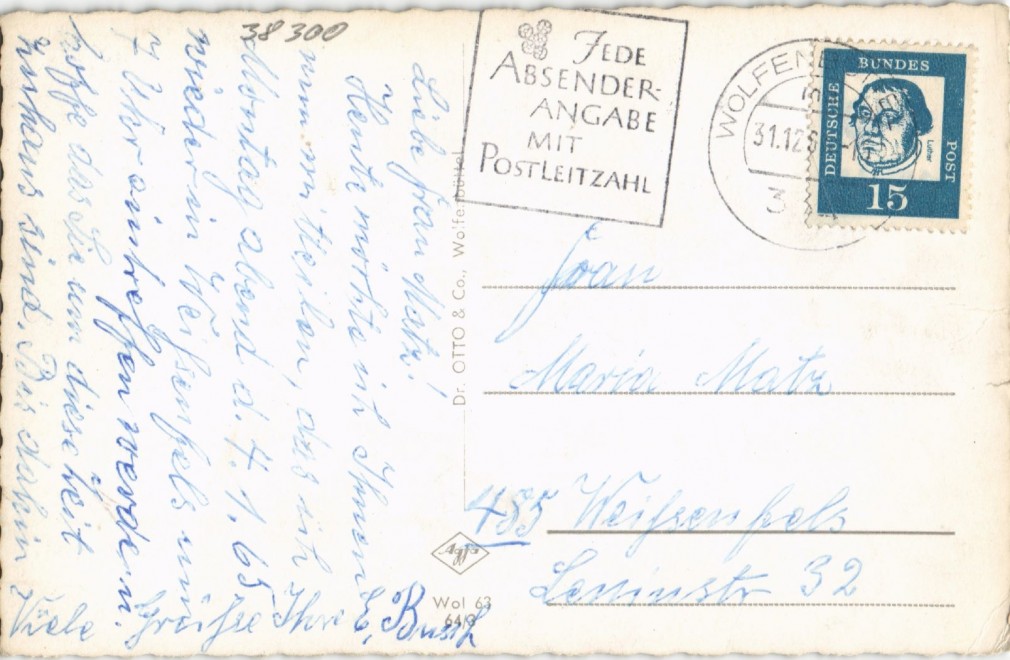 38 300
Liebe Frau Matz!
Heute möchte ich Ihnen
nun mitteilen, das ich
Montag abend d. 4. 1. 65
wieder in Weißenfels um
7 Uhr eintreffen werden.
hoffe das Sie um diese Zeit
zuhaus sind. Bis dahin
Viele Grüsse Ihre E. Busch
JEDE
ABSENDER-
ANGABE
MIT
POSTLEITZAHL
31.12.
3
DEUTSCHE
BUNDES
POST
Luther
15
Dr. OTTO & Co., Wolfenbüttel
Frau
Maria Matz
485 Weißenfels
Leninstr 32
Agfa
Wol 63
64/3